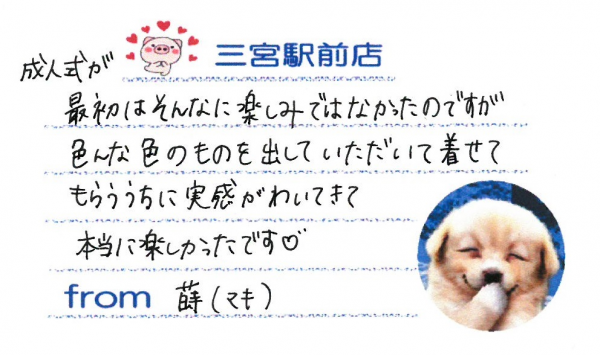 三宮駅前店
成人式が
最初はそんなに楽しみではなかったのですが
色んな色のものを出していただいて着せて
もらううちに実感がわいてきて
本当に楽しかったです♡
from 薛(マキ)